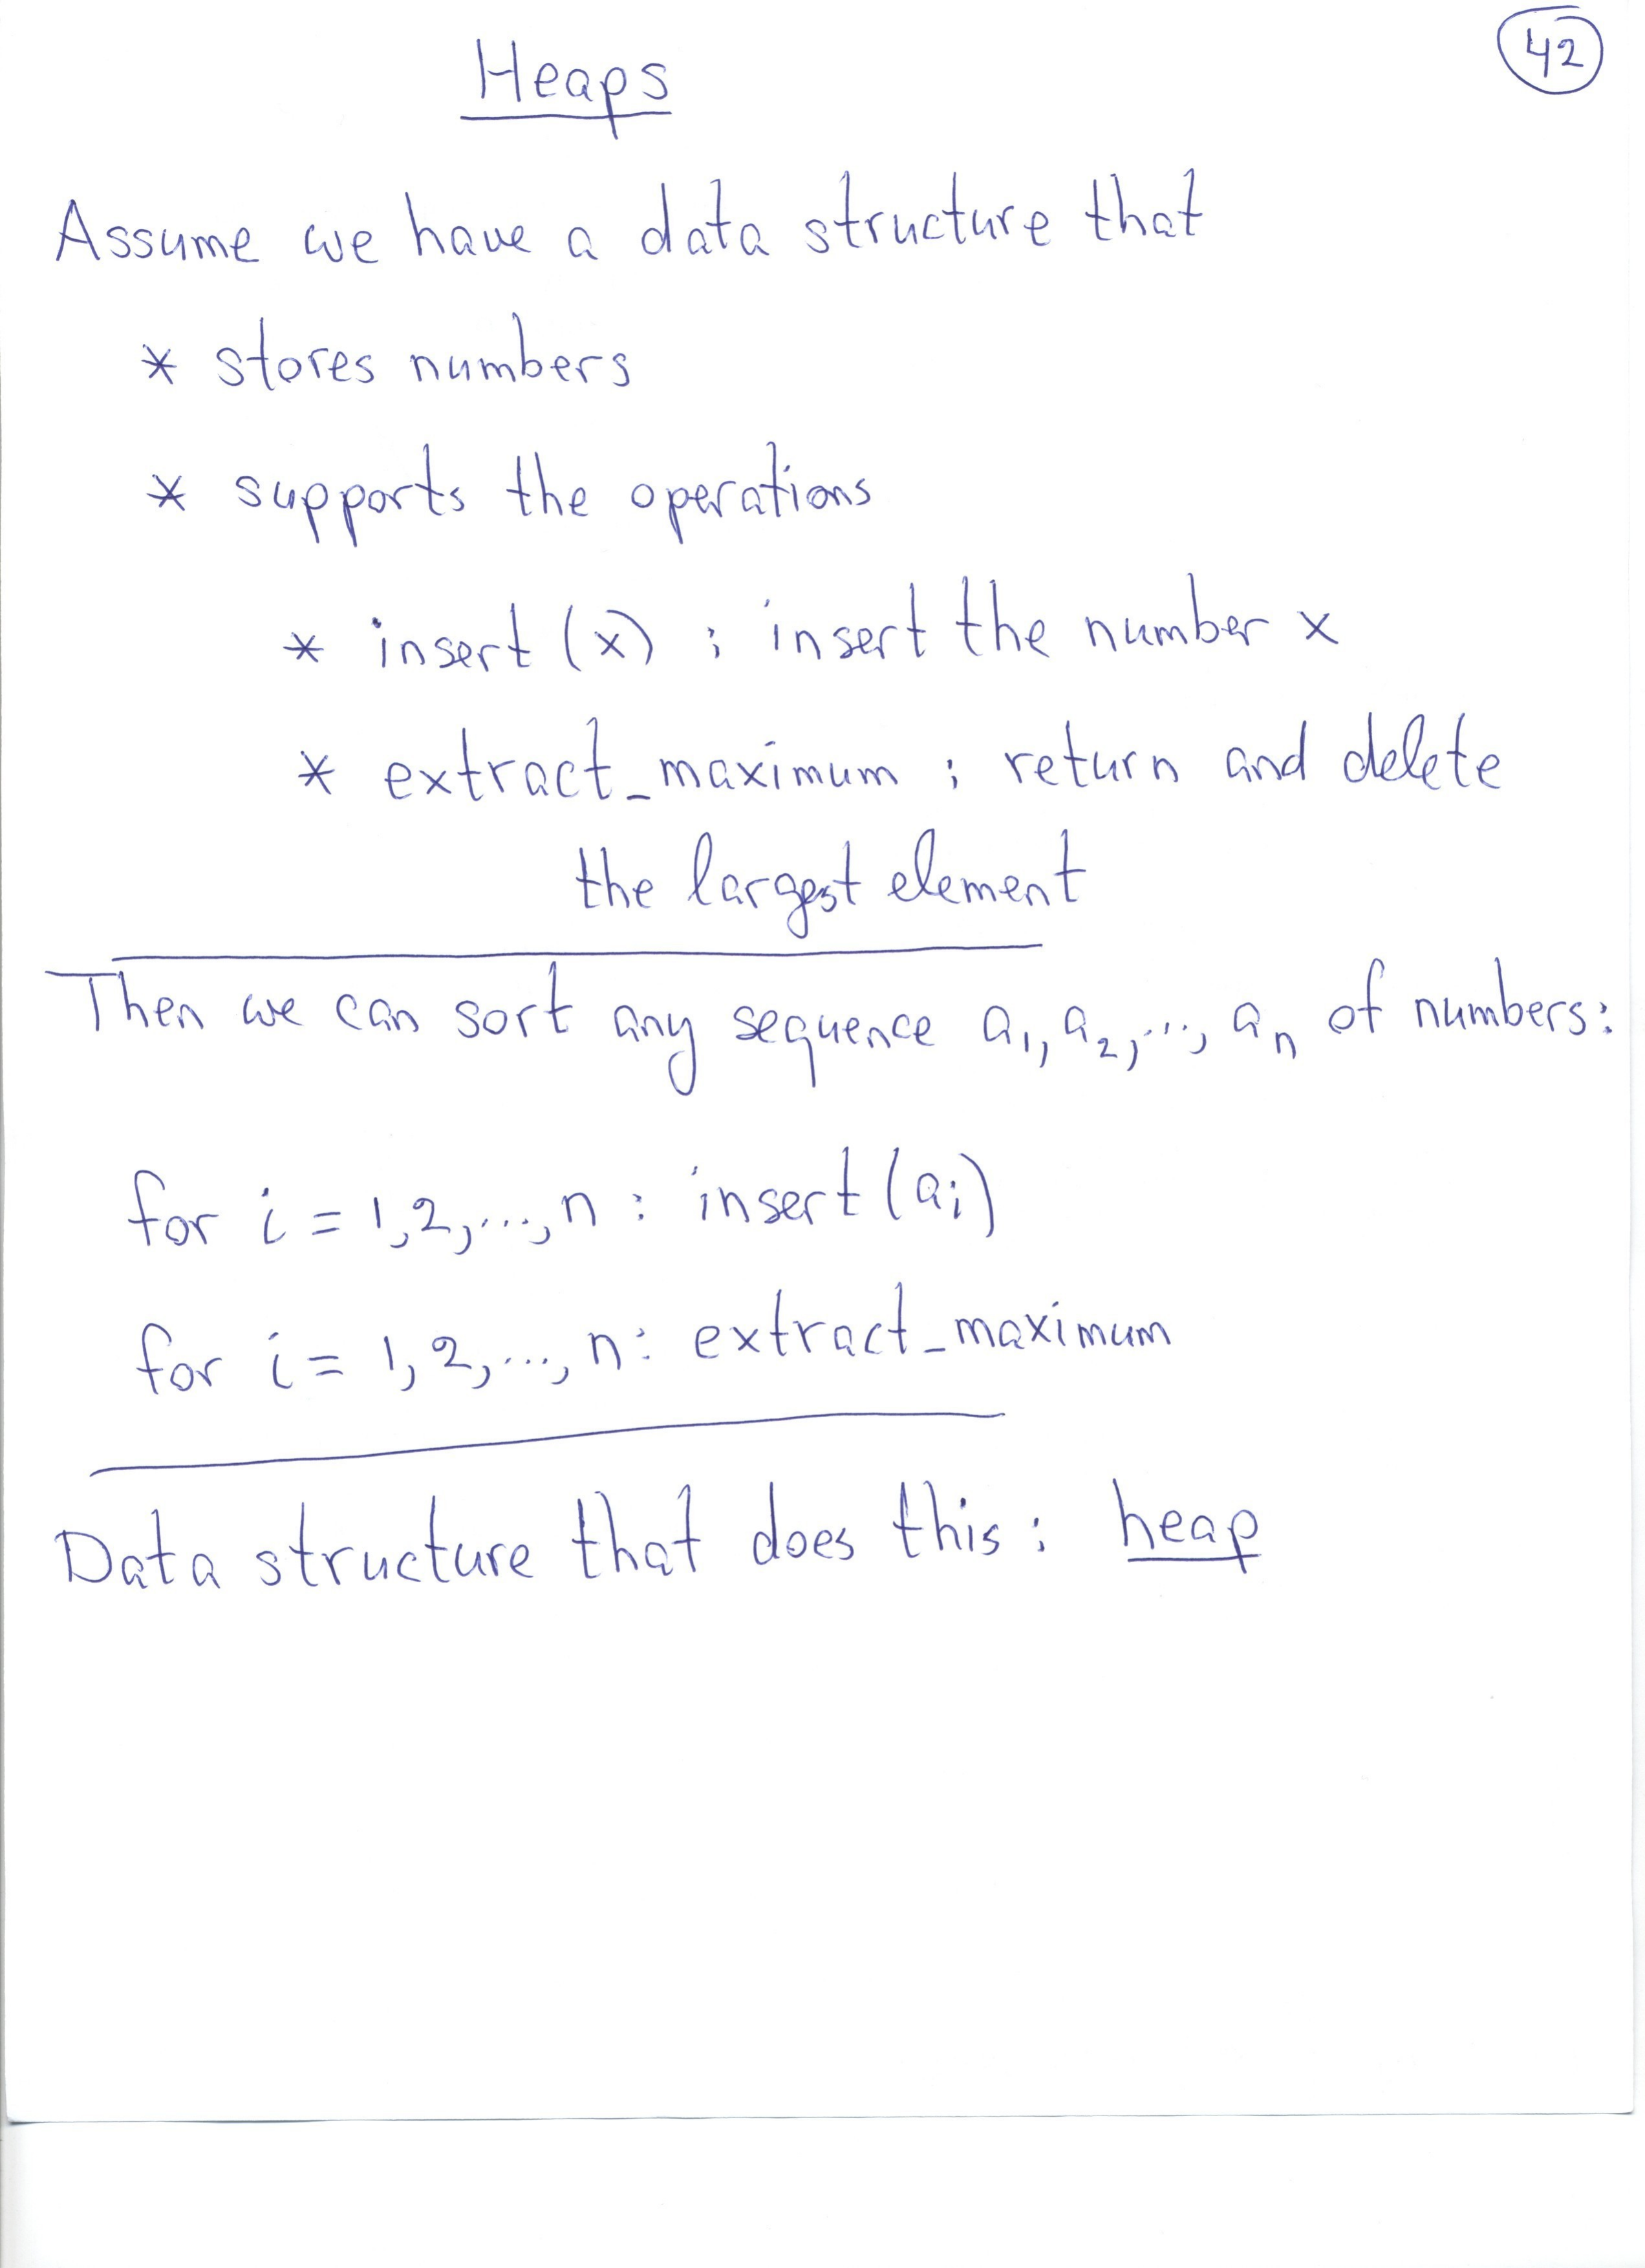 Heaps
42
Assume we have a data structure that
* stores numbers
* supports the operations
* insert (x) ; insert the number x
* extract_maximum ; return and delete
the largest element
Then we can sort any sequence a₁, a₂, ..., aₙ of numbers:
for i = 1,2,...,n : insert (aᵢ)
for i = 1, 2, ..., n: extract_maximum
Data structure that does this : heap